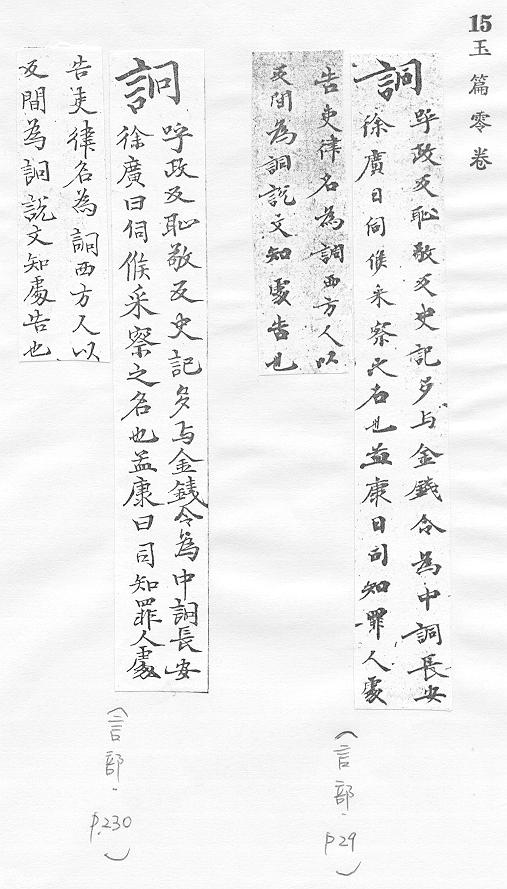 15
玉篇零卷
詗
呼政反恥敬反史記多与金錢令為中詗長安
徐廣曰伺候采察之名也孟康曰司知罪人處
告吏律名為詗西方人以
反間為詗說文知處告也
(言部.
p29)
詗
呼政反恥敬反史記多与金錢令為中詗長安
徐廣曰伺候采察之名也孟康曰司知罪人處
告吏律名為詗西方人以
反間為詗說文知處告也
(言部.
p.230)